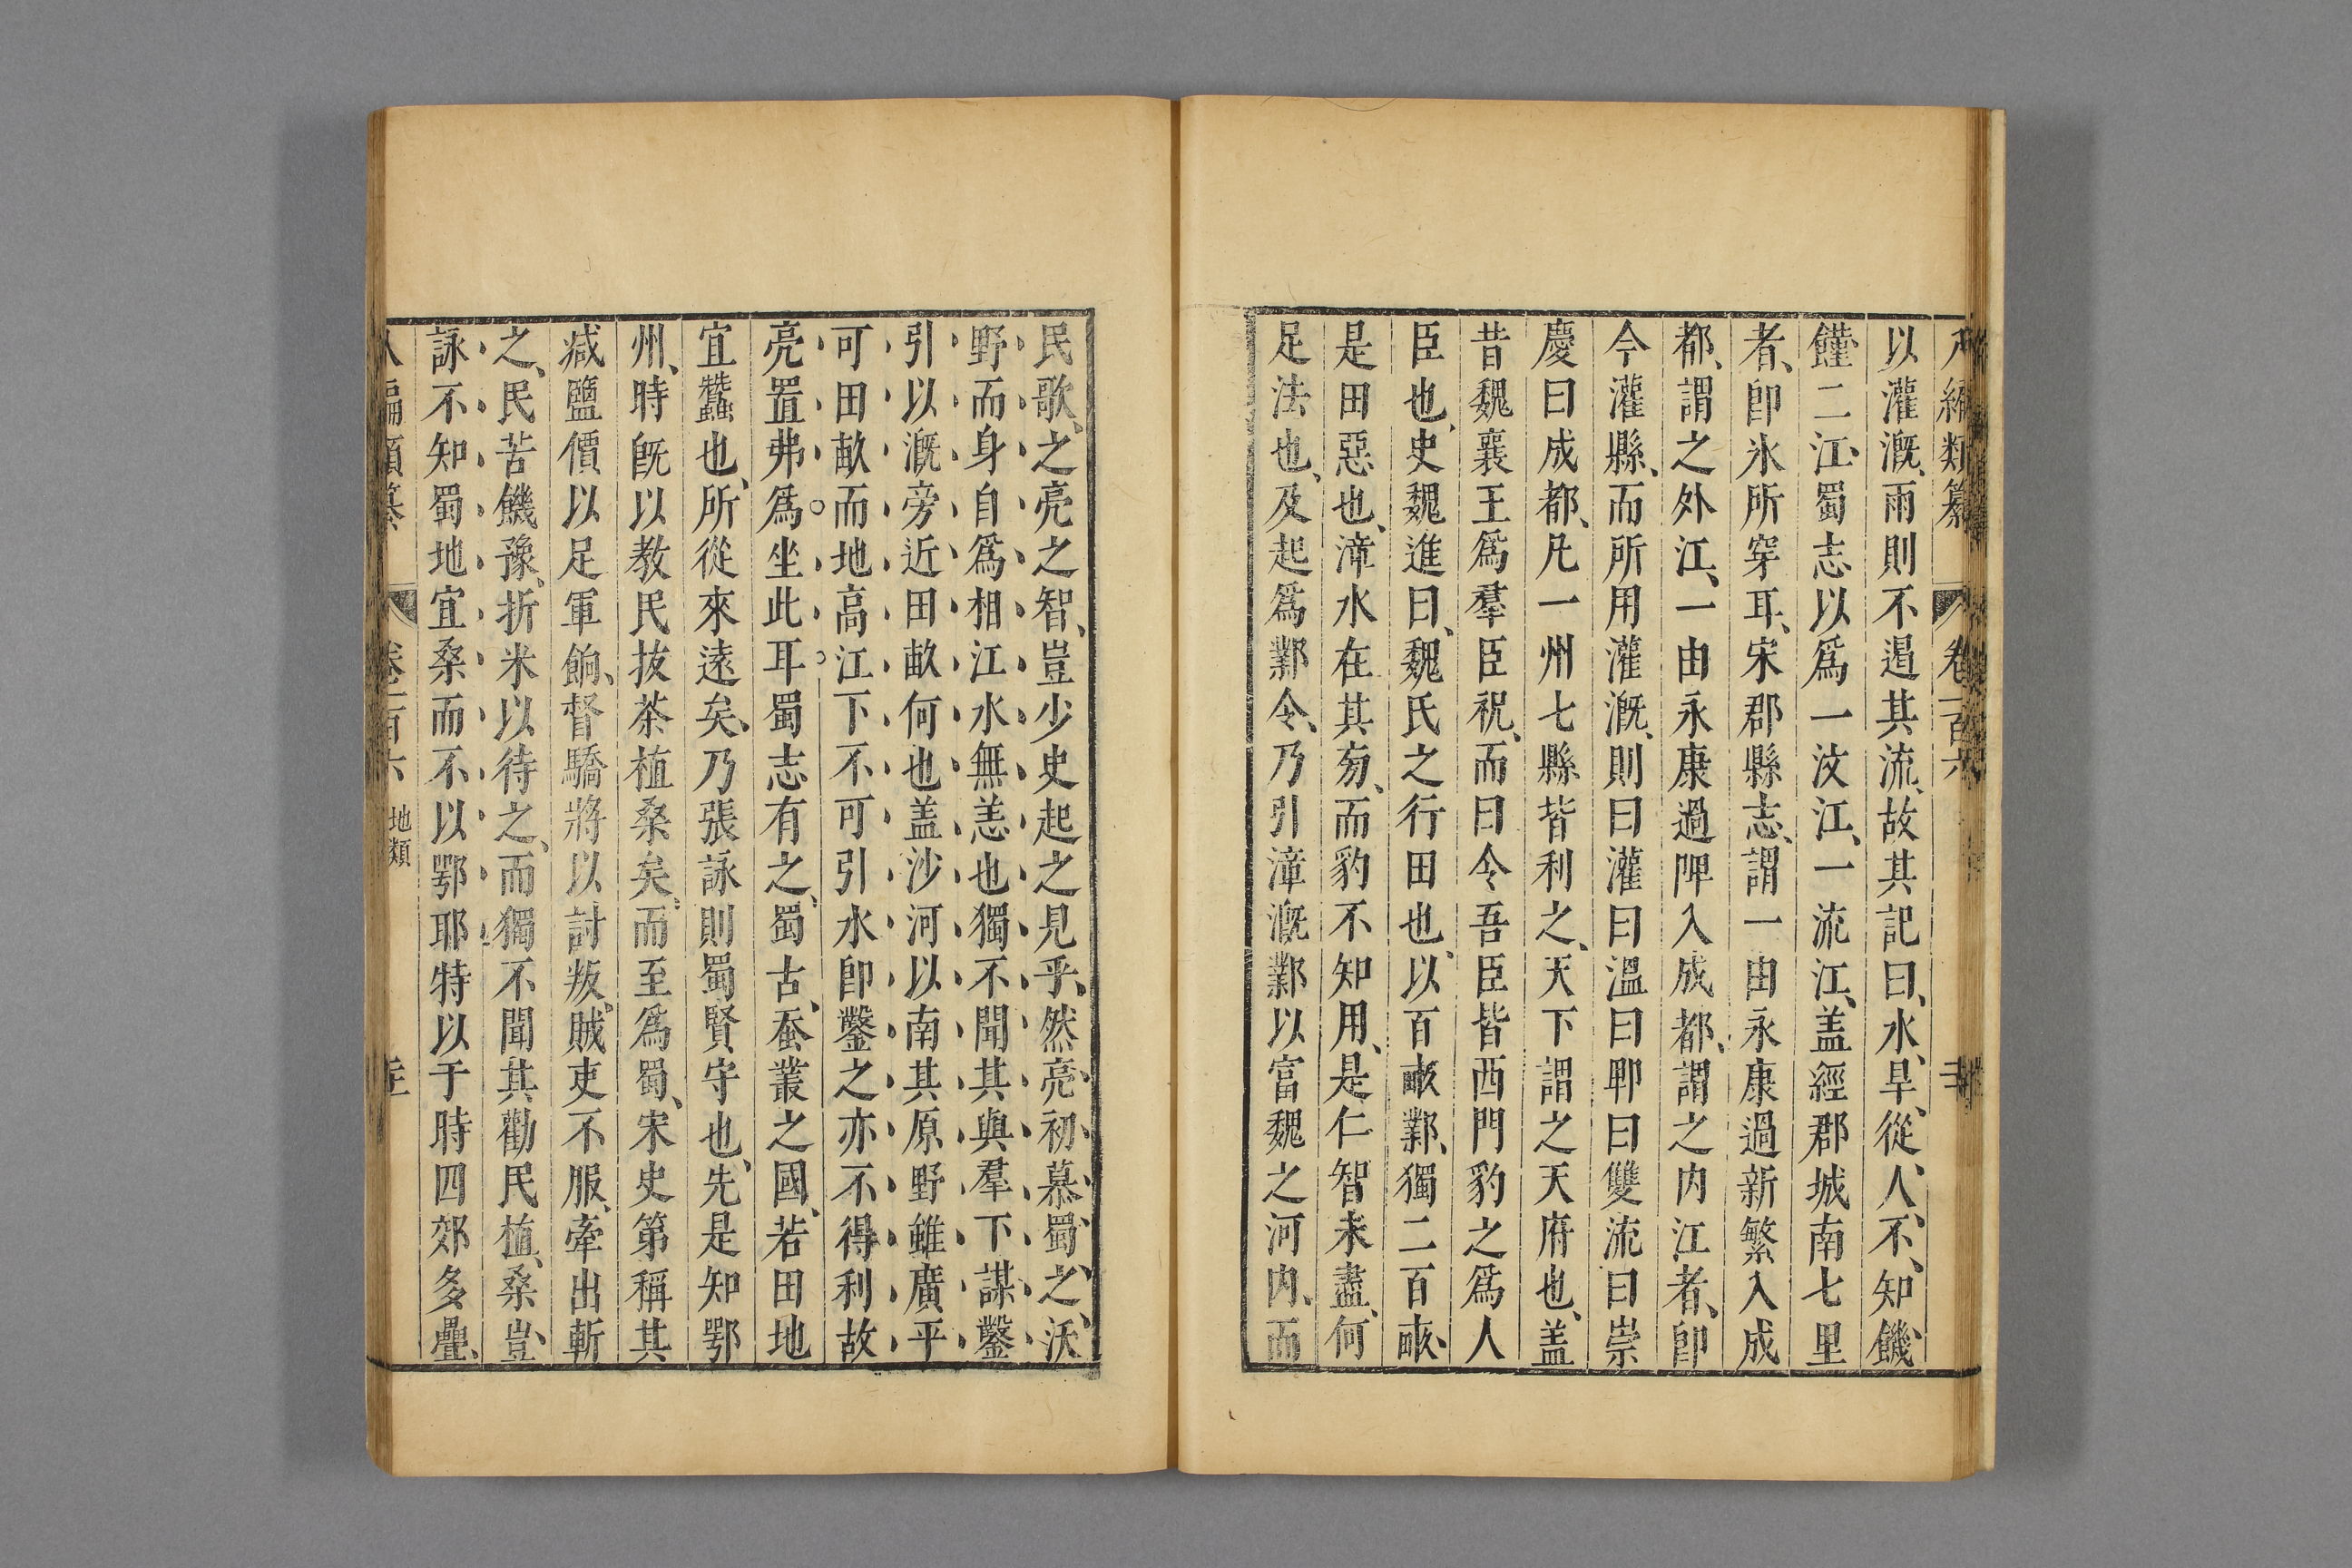 八編類纂 卷一百六
以灌漑、雨則不遏其流、故其記曰、水、旱、從、人、不、知、饑、
饉二江、蜀志以爲一汶江、一流江、蓋經郡城南七里
者、卽氷所穿耳、宋郡縣志、謂一由永康過新繁入成
都、謂之外江、一由永康過陴入成都、謂之内江者、卽
今灌縣、而所用灌漑、則曰灌曰溫曰郫曰雙流曰崇
慶曰成都、凡一州七縣皆利之、天下謂之天府也、盖
昔魏襄王爲羣臣祝、而曰令吾臣皆西門豹之爲人
臣也、史魏進曰、魏氏之行田也、以百畝、鄴、獨二百畝、
是田惡也、漳水在其旁、而豹不知用、是仁智未盡、何
足法也、及起爲鄴令、乃引漳漑鄴以富魏之河内、而
民歌、之亮之智、豈少史起之見乎、然亮初慕蜀、之、沃
野而身自爲相江水無恙也獨不聞其與羣下謀鑿
引以漑旁近田畝何也盖沙河以南其原野雖廣平
可田畝而地高江下不可引水卽鑿之亦不得利故
亮置弗爲坐此耳蜀志有之、蜀古、蚕叢之國、若田地
宜蠶也、所從來遠矣、乃張詠則蜀賢守也、先是知鄂
州、時旣以教民拔茶植桑矣、而至爲蜀、宋史第稱其
减鹽價以足軍餉、督驕將以討叛、賊吏不服、牽出斬
之、民苦饑豫、折米以待之、而獨不聞其勸民植、桑、豈、
詠不知蜀地宜桑而不以鄂耶特以于時四郊多壘、
八編類纂 卷一百六 地類